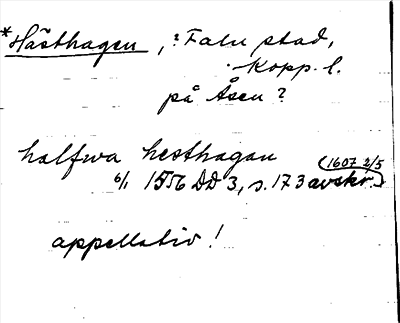 *Hästhagen, ? Falu stad,
Kopp. l.
på Åsen?
halfwa hesthagan
(1607 2/5
6/1 1556 DD 3, s. 173 avskr.)
appellativ!